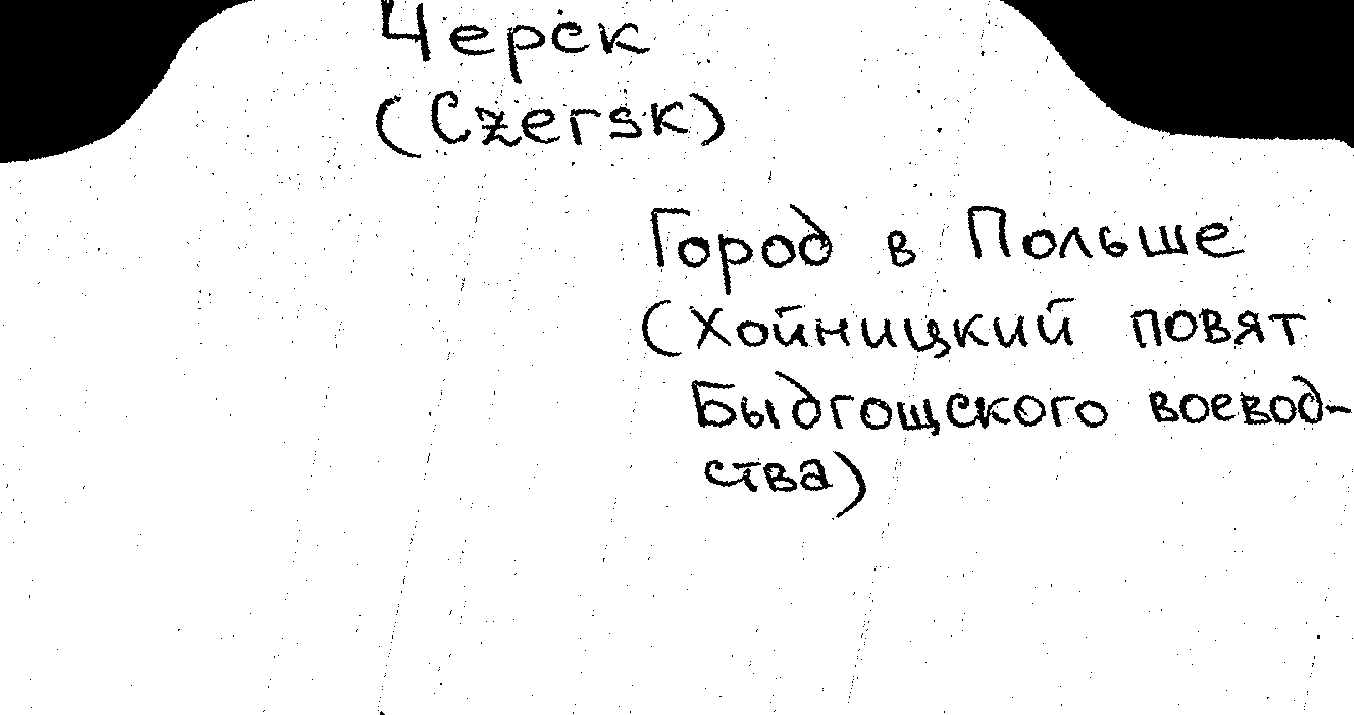 Черск
(Czersk)
Город в Польше
(Хойницкий повят
Быдгощского воевод-
ства)